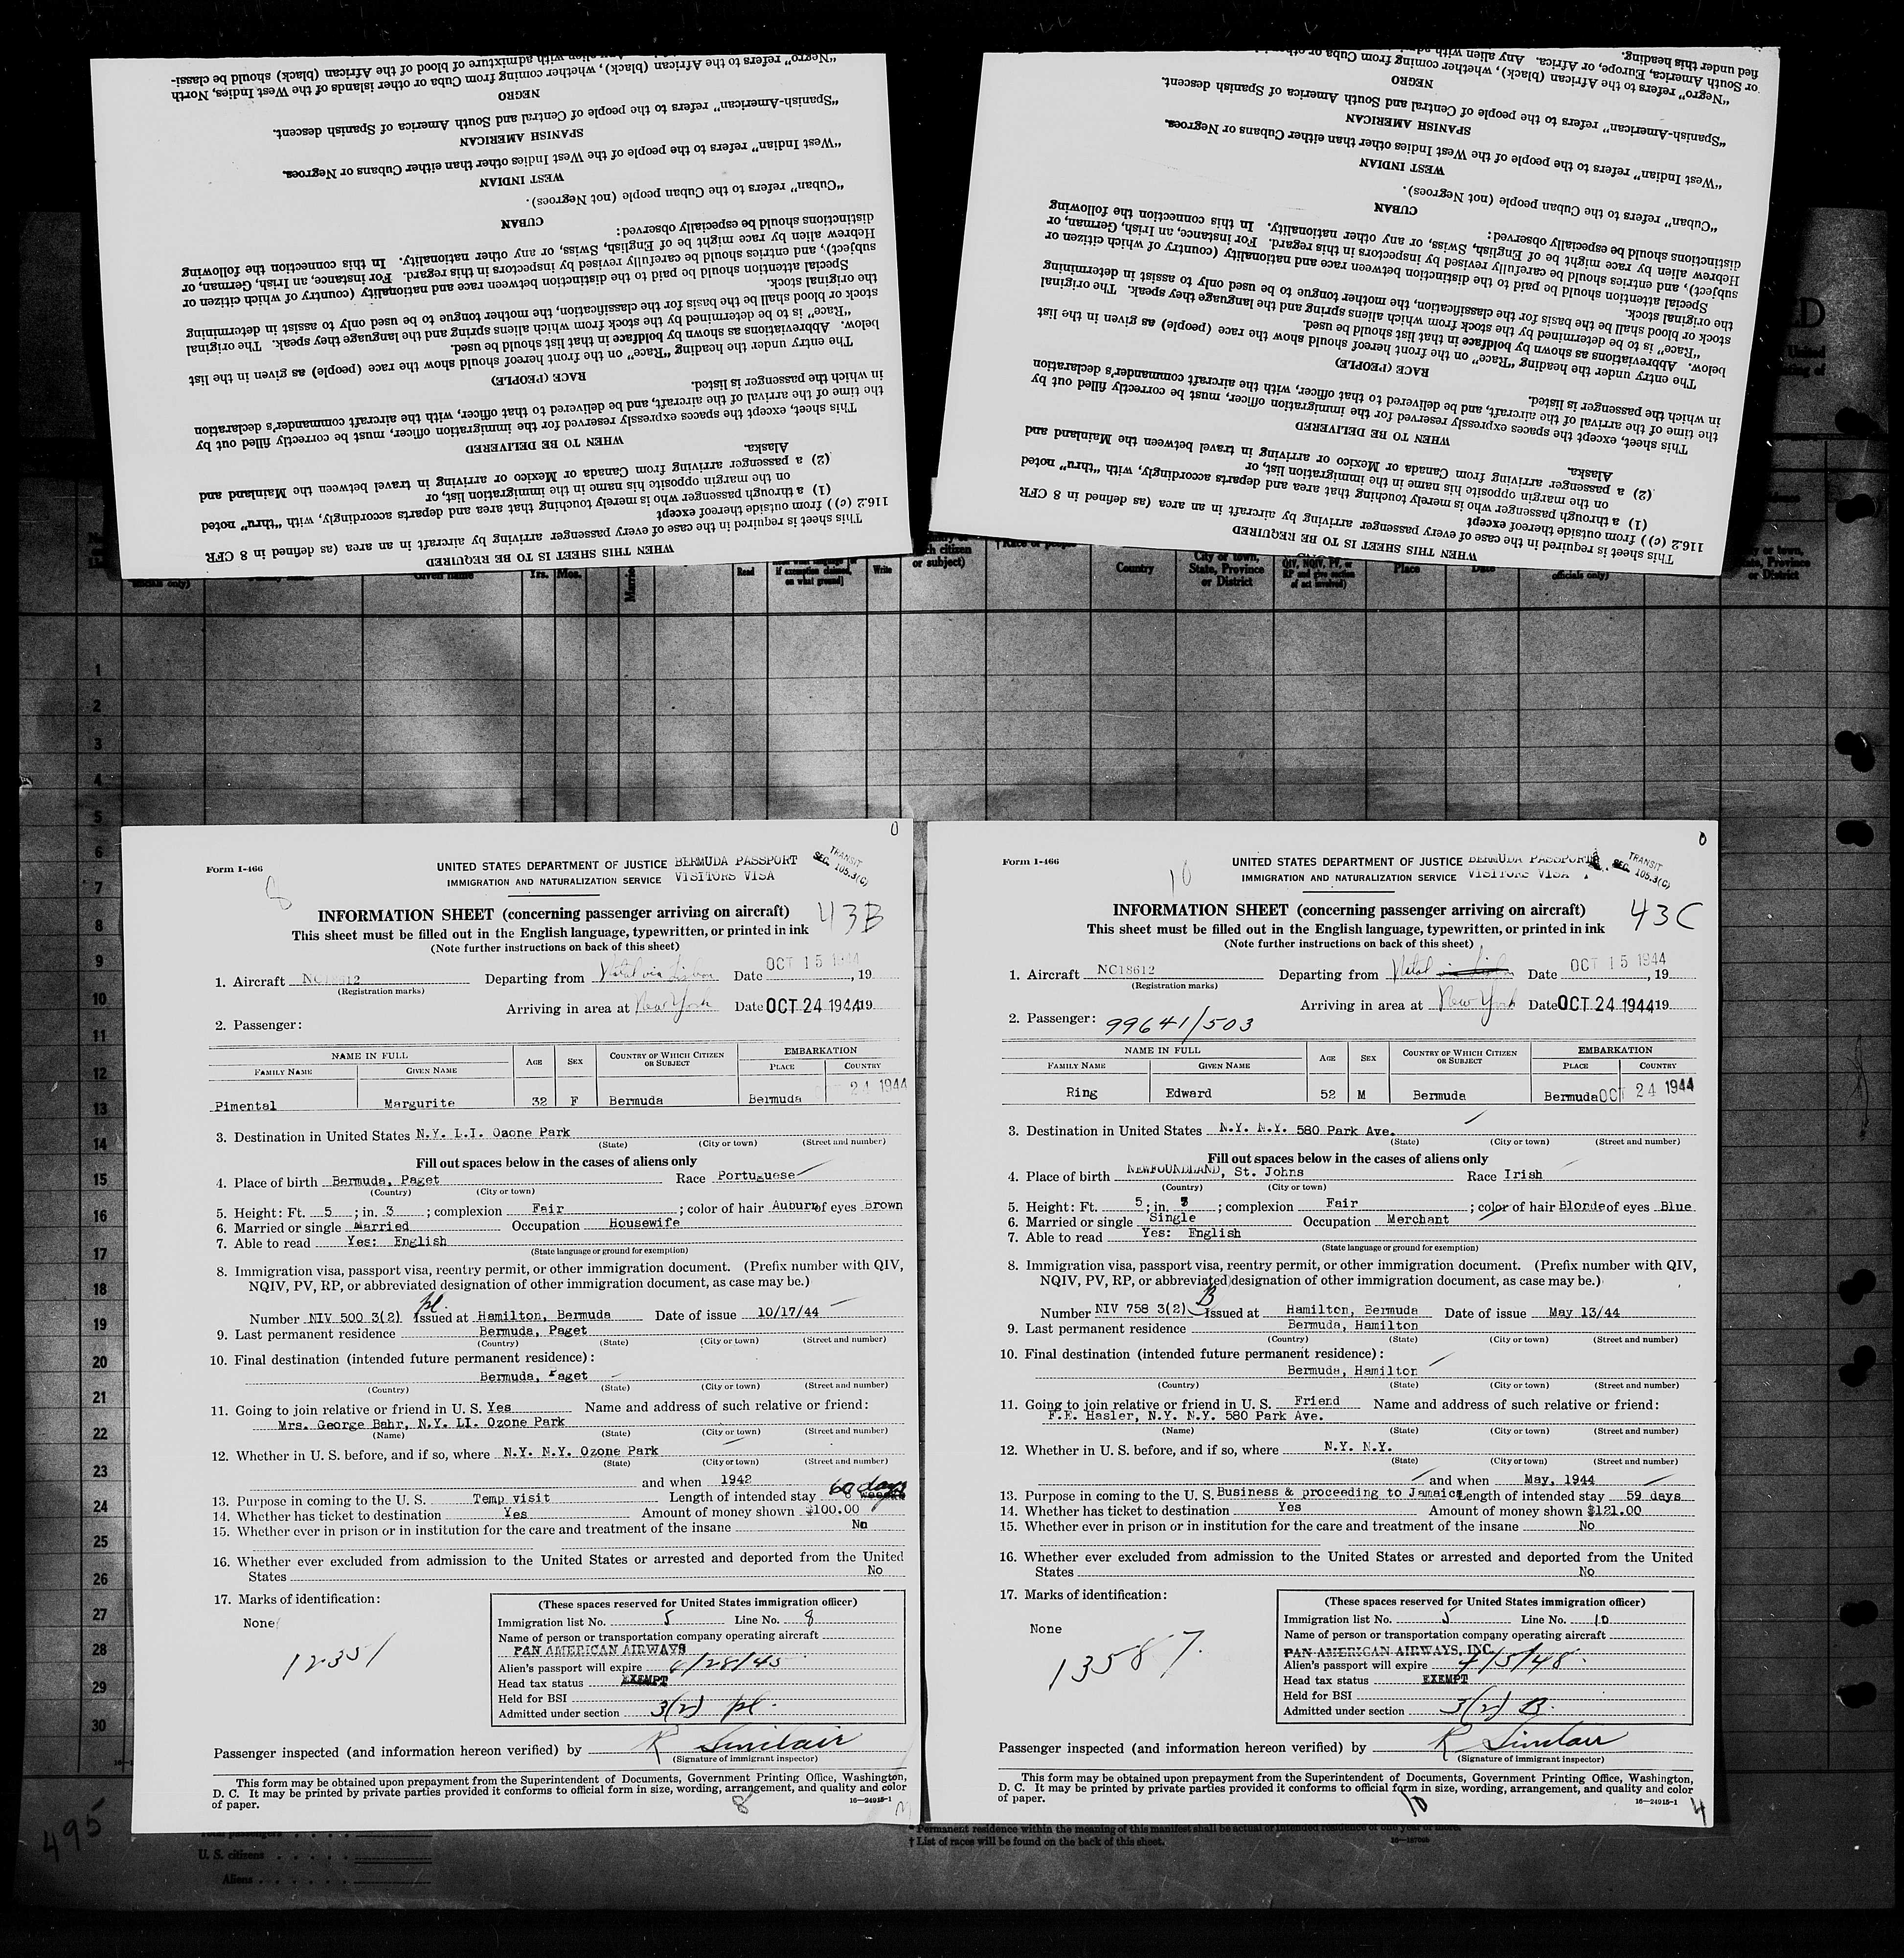 Form I-466
UNITED STATES DEPARTMENT OF JUSTICE BERMUDA PASSPORT
IMMIGRATION AND NATURALIZATION SERVICE VISITORS VISA
TRANSIT
SEC. 105.3(C)
8
INFORMATION SHEET (concerning passenger arriving on aircraft) 43B
This sheet must be filled out in the English language, typewritten, or printed in ink
(Note further instructions on back of this sheet)
1. Aircraft NC18612 Departing from Natal via Lisbon Date OCT 15 1944, 19
(Registration marks)
Arriving in area at New York Date OCT 24 1944 19
2. Passenger:
NAME IN FULL AGE SEX COUNTRY OF WHICH CITIZEN OR SUBJECT EMBARKATION
FAMILY NAME GIVEN NAME PLACE COUNTRY
Pimental Margurite 32 F Bermuda Bermuda OCT 24 1944
3. Destination in United States N.Y. L.I. Ozone Park
(State) (City or town) (Street and number)
Fill out spaces below in the cases of aliens only
4. Place of birth Bermuda, Paget Race Portuguese
(Country) (City or town)
5. Height: Ft. 5; in. 3; complexion Fair; color of hair Auburn of eyes Brown
6. Married or single Married Occupation Housewife
7. Able to read Yes: English
(State language or ground for exemption)
8. Immigration visa, passport visa, reentry permit, or other immigration document. (Prefix number with QIV,
NQIV, PV, RP, or abbreviated designation of other immigration document, as case may be.)
Number NIV 500 3(2) pl. Issued at Hamilton, Bermuda Date of issue 10/17/44
9. Last permanent residence Bermuda, Paget
(Country) (State) (City or town) (Street and number)
10. Final destination (intended future permanent residence):
Bermuda, Paget
(Country) (State) (City or town) (Street and number)
11. Going to join relative or friend in U. S. Yes Name and address of such relative or friend:
Mrs. George Bahr, N.Y. LI. Ozone Park
(Name) (State) (City or town) (Street and number)
12. Whether in U. S. before, and if so, where N.Y. N.Y. Ozone Park
(State) (City or town) (Street and number)
and when 1942
13. Purpose in coming to the U. S. Temp visit Length of intended stay 60 days
14. Whether has ticket to destination Yes Amount of money shown $100.00
15. Whether ever in prison or in institution for the care and treatment of the insane No
16. Whether ever excluded from admission to the United States or arrested and deported from the United
States No
17. Marks of identification:
None
12351
(These spaces reserved for United States immigration officer)
Immigration list No. 5 Line No. 8
Name of person or transportation company operating aircraft
PAN AMERICAN AIRWAYS
Alien's passport will expire 6/28/45
Head tax status EXEMPT
Held for BSI
Admitted under section 3(2) pl.
Passenger inspected (and information hereon verified) by R Sinclair
(Signature of immigrant inspector)
This form may be obtained upon prepayment from the Superintendent of Documents, Government Printing Office, Washington,
D. C. It may be printed by private parties provided it conforms to official form in size, wording, arrangement, and quality and color
of paper. 8 16—24915-1
Form I-466
UNITED STATES DEPARTMENT OF JUSTICE BERMUDA PASSPORT
IMMIGRATION AND NATURALIZATION SERVICE VISITORS VISA
TRANSIT
SEC. 105.3(C)
10
INFORMATION SHEET (concerning passenger arriving on aircraft) 43C
This sheet must be filled out in the English language, typewritten, or printed in ink
(Note further instructions on back of this sheet)
1. Aircraft NC18612 Departing from Natal via Lisbon Date OCT 15 1944, 19
(Registration marks)
Arriving in area at New York Date OCT 24 1944 19
2. Passenger: 99641/503
NAME IN FULL AGE SEX COUNTRY OF WHICH CITIZEN OR SUBJECT EMBARKATION
FAMILY NAME GIVEN NAME PLACE COUNTRY
Ring Edward 52 M Bermuda Bermuda OCT 24 1944
3. Destination in United States N.Y. N.Y. 580 Park Ave.
(State) (City or town) (Street and number)
Fill out spaces below in the cases of aliens only
4. Place of birth NEWFOUNDLAND, St. Johns Race Irish
(Country) (City or town)
5. Height: Ft. 5; in. 8; complexion Fair; color of hair Blonde of eyes Blue
6. Married or single Single Occupation Merchant
7. Able to read Yes: English
(State language or ground for exemption)
8. Immigration visa, passport visa, reentry permit, or other immigration document. (Prefix number with QIV,
NQIV, PV, RP, or abbreviated designation of other immigration document, as case may be.)
Number NIV 758 3(2) B Issued at Hamilton, Bermuda Date of issue May 13/44
9. Last permanent residence Bermuda, Hamilton
(Country) (State) (City or town) (Street and number)
10. Final destination (intended future permanent residence):
Bermuda, Hamilton
(Country) (State) (City or town) (Street and number)
11. Going to join relative or friend in U. S. Friend Name and address of such relative or friend:
F.E. Hasler, N.Y. N.Y. 580 Park Ave.
(Name) (State) (City or town) (Street and number)
12. Whether in U. S. before, and if so, where N.Y. N.Y.
(State) (City or town) (Street and number)
and when May, 1944
13. Purpose in coming to the U. S. Business & proceeding to Jamaica Length of intended stay 59 days
14. Whether has ticket to destination Yes Amount of money shown $121.00
15. Whether ever in prison or in institution for the care and treatment of the insane No
16. Whether ever excluded from admission to the United States or arrested and deported from the United
States No
17. Marks of identification:
None
13587.
(These spaces reserved for United States immigration officer)
Immigration list No. 5 Line No. 10
Name of person or transportation company operating aircraft
PAN AMERICAN AIRWAYS, INC.
Alien's passport will expire 4/5/48.
Head tax status EXEMPT
Held for BSI
Admitted under section 3(2) B.
Passenger inspected (and information hereon verified) by R Sinclair
(Signature of immigrant inspector)
This form may be obtained upon prepayment from the Superintendent of Documents, Government Printing Office, Washington,
D. C. It may be printed by private parties provided it conforms to official form in size, wording, arrangement, and quality and color
of paper. 10 16—24915-1 4
WHEN THIS SHEET IS TO BE REQUIRED
This sheet is required in the case of every passenger arriving by aircraft in an area (as defined in 8 CFR
116.2 (c)) from outside thereof except
(1) a through passenger who is merely touching that area and departs accordingly, with "thru" noted
on the margin opposite his name in the immigration list, or
(2) a passenger arriving from Canada or Mexico or arriving in travel between the Mainland and
Alaska.
WHEN TO BE DELIVERED
This sheet, except the spaces expressly reserved for the immigration officer, must be correctly filled out by
the time of the arrival of the aircraft, and be delivered to that officer, with the aircraft commander's declaration
in which the passenger is listed.
RACE (PEOPLE)
The entry under the heading "Race" on the front hereof should show the race (people) as given in the list
below. Abbreviations as shown by boldface in that list should be used.
"Race" is to be determined by the stock from which aliens spring and the language they speak. The original
stock or blood shall be the basis for the classification, the mother tongue to be used only to assist in determining
the original stock.
Special attention should be paid to the distinction between race and nationality (country of which citizen or
subject), and entries should be carefully revised by inspectors in this regard. For instance, an Irish, German, or
Hebrew alien by race might be of English, Swiss, or any other nationality. In this connection the following
distinctions should be especially observed:
CUBAN
"Cuban" refers to the Cuban people (not Negroes).
WEST INDIAN
"West Indian" refers to the people of the West Indies other than either Cubans or Negroes.
SPANISH AMERICAN
"Spanish-American" refers to the people of Central and South America of Spanish descent.
NEGRO
"Negro" refers to the African (black), whether coming from Cuba or other islands of the West Indies, North
alien with admixture of blood of the African (black) should be classi-
WHEN THIS SHEET IS TO BE REQUIRED
This sheet is required in the case of every passenger arriving by aircraft in an area (as defined in 8 CFR
116.2 (c)) from outside thereof except
(1) a through passenger who is merely touching that area and departs accordingly, with "thru" noted
on the margin opposite his name in the immigration list, or
(2) a passenger arriving from Canada or Mexico or arriving in travel between the Mainland and
Alaska.
WHEN TO BE DELIVERED
This sheet, except the spaces expressly reserved for the immigration officer, must be correctly filled out by
the time of the arrival of the aircraft, and be delivered to that officer, with the aircraft commander's declaration
in which the passenger is listed.
RACE (PEOPLE)
The entry under the heading "Race" on the front hereof should show the race (people) as given in the list
below. Abbreviations as shown by boldface in that list should be used.
"Race" is to be determined by the stock from which aliens spring and the language they speak. The original
stock or blood shall be the basis for the classification, the mother tongue to be used only to assist in determining
the original stock.
Special attention should be paid to the distinction between race and nationality (country of which citizen or
subject), and entries should be carefully revised by inspectors in this regard. For instance, an Irish, German, or
Hebrew alien by race might be of English, Swiss, or any other nationality. In this connection the following
distinctions should be especially observed:
CUBAN
"Cuban" refers to the Cuban people (not Negroes).
WEST INDIAN
"West Indian" refers to the people of the West Indies other than either Cubans or Negroes.
SPANISH AMERICAN
"Spanish-American" refers to the people of Central and South America of Spanish descent.
NEGRO
"Negro" refers to the African (black), whether coming from Cuba or
or South America, Europe, or Africa. Any alien with
fied under this heading.
1
2
3
4
5
6
7
8
9
10
11
12
13
14
15
16
17
18
19
20
21
22
23
24
25
26
27
28
29
30
495
Total passengers
U. S. citizens
Aliens
* Permanent residence within the meaning of this manifest shall be actual or intended residence of one year or more.
† List of races will be found on the back of this sheet.